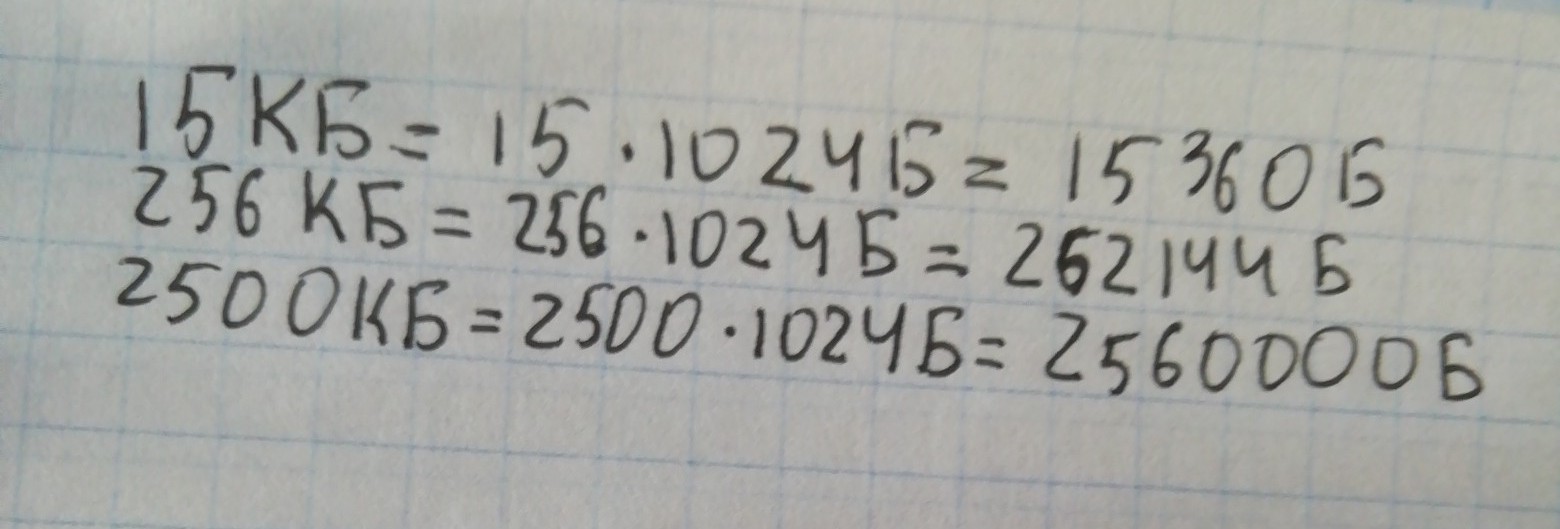 15 КБ = 15 · 1024 Б = 15360 Б
256 КБ = 256 · 1024 Б = 262144 Б
2500 КБ = 2500 · 1024 Б = 2560000 Б